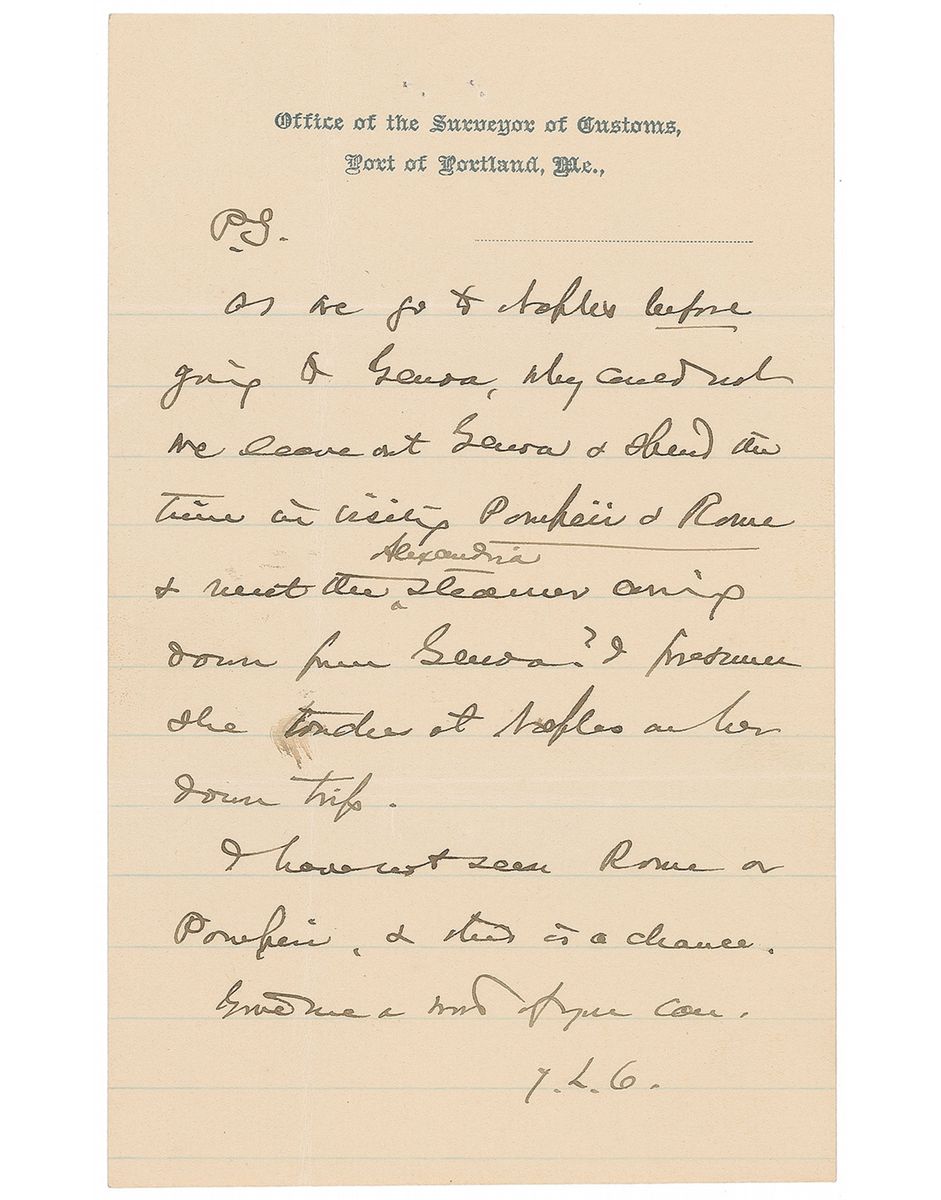 Office of the Surveyor of Customs,
Port of Portland, Me.,
P.S.
As we go to Naples before
going to Genoa, why could not
we leave out Genoa & spend the
time in visiting Pompeii & Rome
Alexandria
& meet the ^ steamer coming
down from Genoa? I presume
she touches at Naples on her
down trip.
I have not seen Rome or
Pompeii, & this is a chance.
Send me a word if you can.
J. L. C.